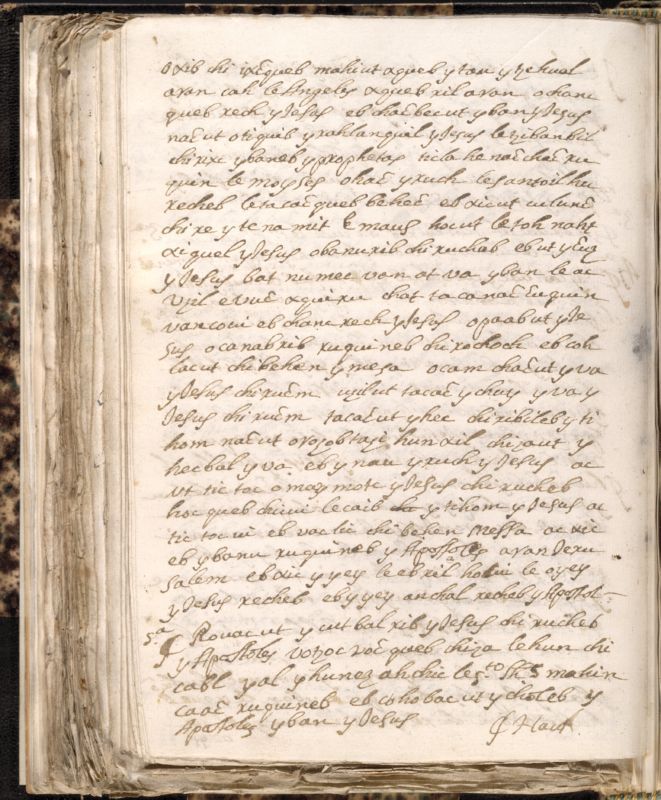 oxib chi ixcqueb mahi ut aqueb y tau y tzehual
aran cah le Angeles aqueb xil aran ocham
queb rech y Jesus eb chac becut y ban y Jesus
nac ut otiquib y rahlanquil y Jesus le tzibanbil
chi rix y baneb y prophetas ticla he nac chac xu
quin le moyses ohac y ruch le santoil hu
recheb le tacac queb behec eb xic ut uilunc
chi re y tenamit Emaus hocut le toh naht
xiquel y Jesus obanu rib chi rucheb eb ut y cuz
y Jesus bat numec van at va y ban le ac
vzil evuc aquixu chat tacanac cuquin
vancoui eb cham rech y Jesus opaab ut y Je
sus ocanab rib ruquineb chi rochoch eb coh
lac ut chi behen y mesa ocam chacut y va
y Jesus chi rucm uzilut tacac y chuy y va y
Jesus chi rucm tacacut y hec chi ribileb y ti
hom nac ut orozobtasi hunxil chi zaut y
hecbal y va. eb y nau y ruch y Jesus ac
ut tic toc omaz mote y Jesus chi rucheb
hoc queb chiui le caib y tihom y Jesus ac
tic toc ui eb vaclic chi behen messa ac xic
eb y banu ruquineb y Apostoles aran Jeru
salem eb xic y yey le eb ril hotui le oyey
y Jesus recheb eb y yey anchal recheb y Apostol-
5ª Rouac ut y cutbal rib y Jesus chi rucheb
y Apostoles vozoc voc queb chi za lehun chi
cabl y al y hunez ahchic le Sto Ths mahin
caac ruquineb eb cohobac ut y choleb y
Apostoles y ban y Jesus Haut.